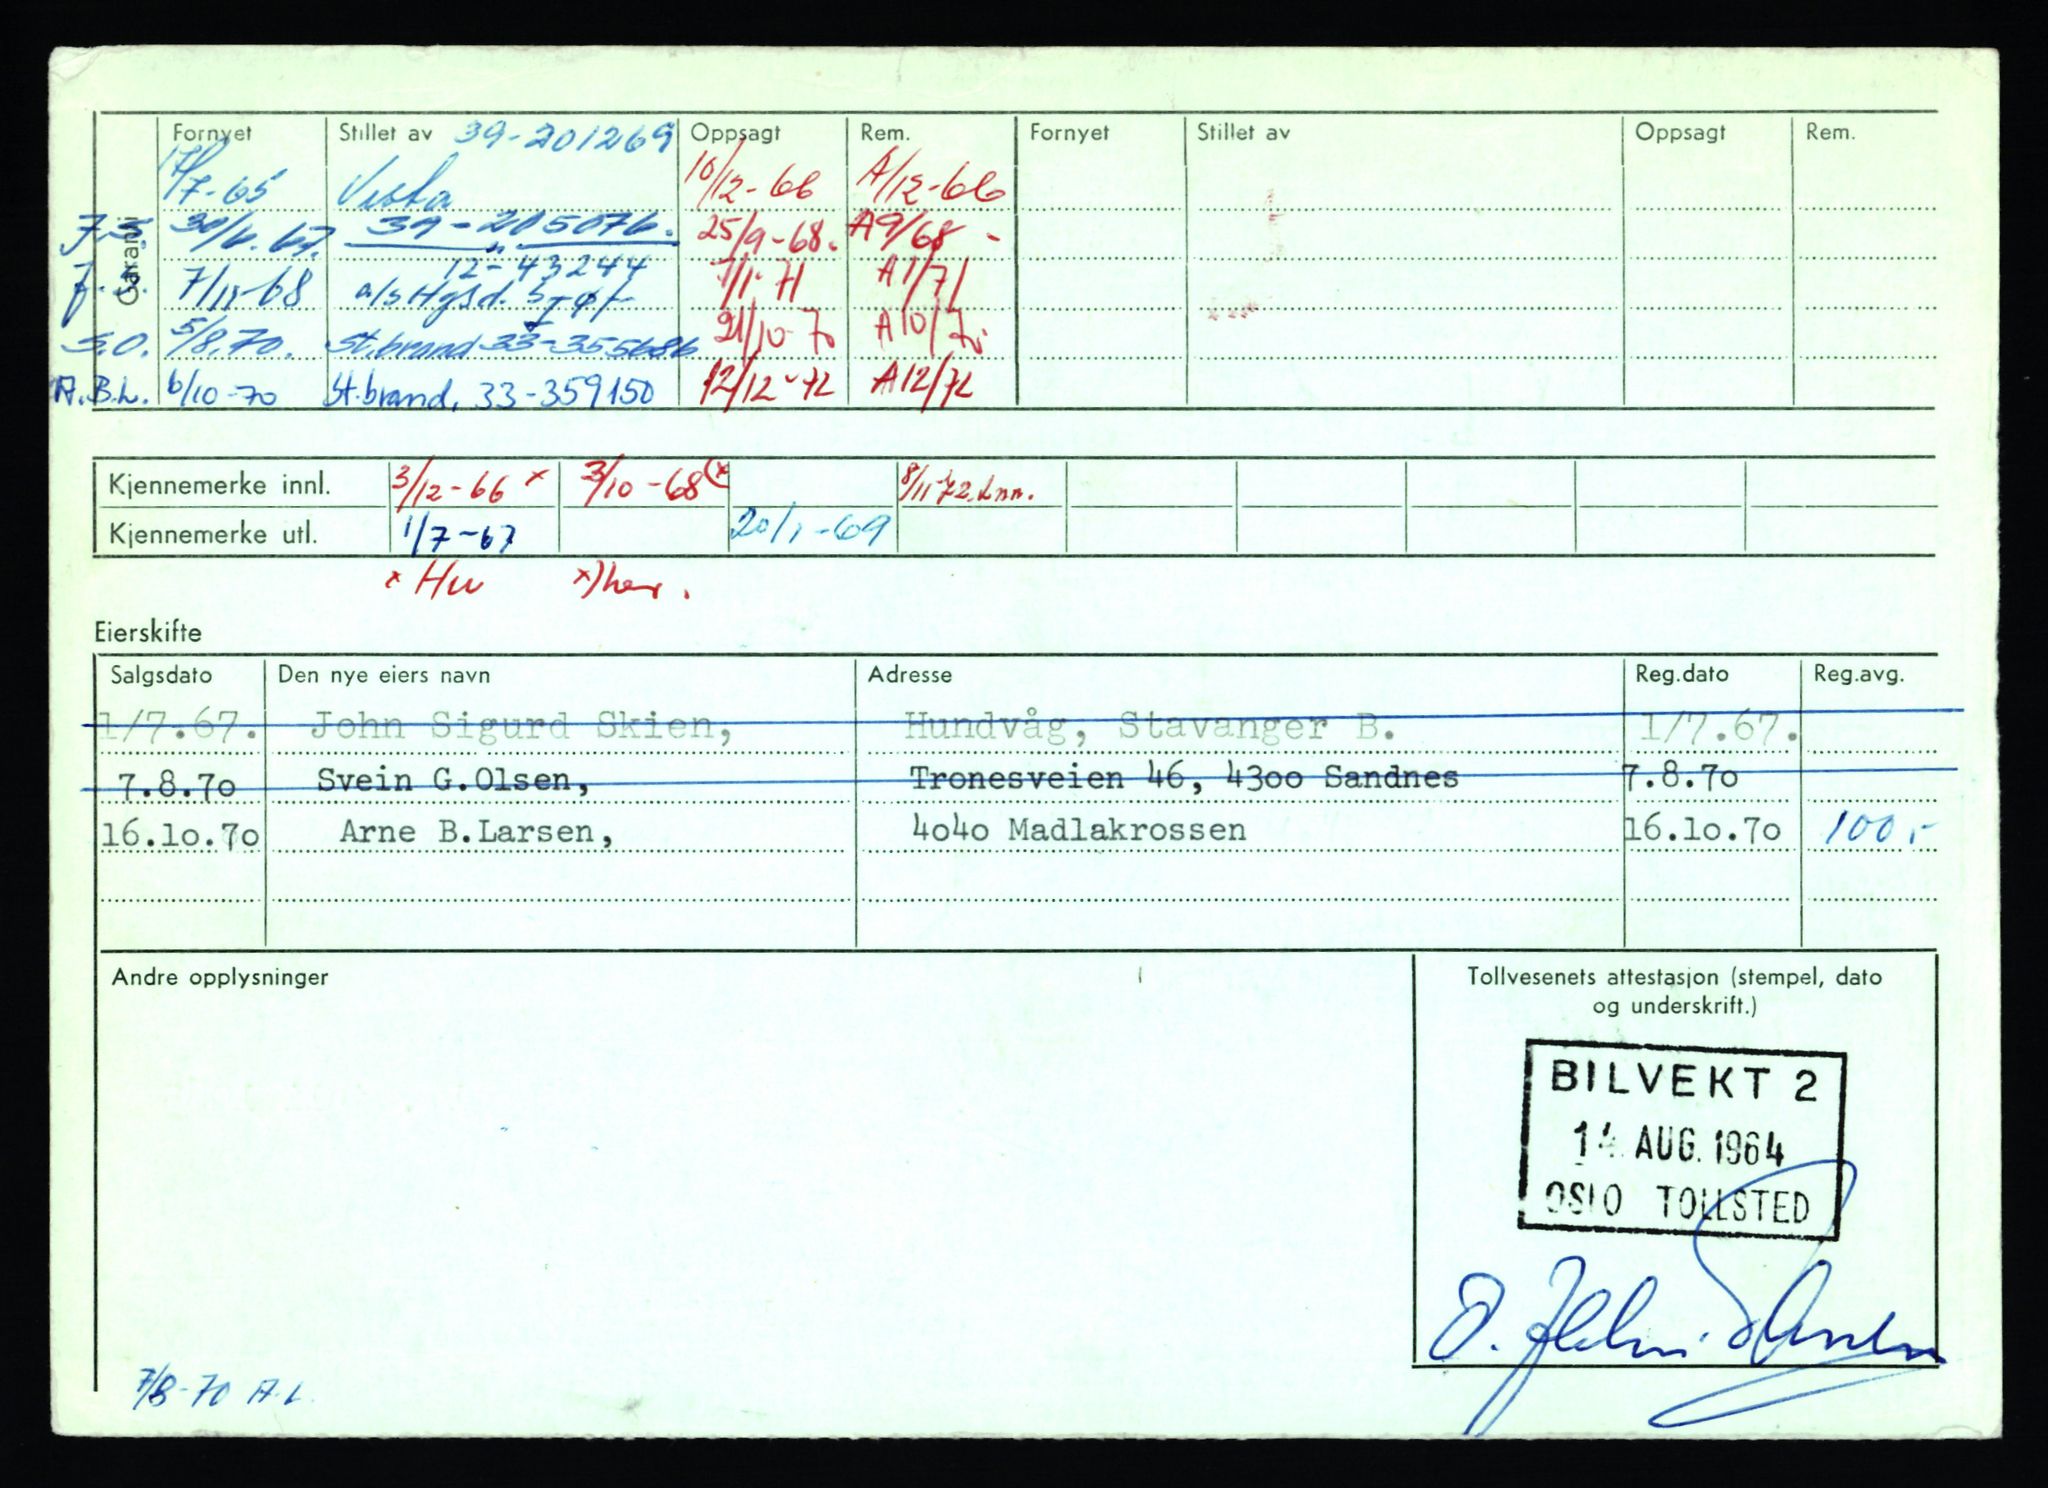 Garanti
Fornyet Stillet av 39-201269 Oppsagt Rem. Fornyet Stillet av Oppsagt Rem.
17/7-65 Vesta 10/12-66 A/12-66
J.S. 30/6.67. 39-205076. 25/9-68. A9/68 -
12-43244
7/11-68 a/s Hgsd. 7/1-71 A1/71
S.O. 5/8.70. St.brand 33-355686 21/10-70 A10/70
A.B.L. 6/10-70 St.brand, 33-359150 12/12-72 A12/72
Kjennemerke innl. 3/12-66 x 3/10-68 (x 8/11-72.
Kjennemerke utl. 1/7-67 20/1-69
x Hu x) her.
Eierskifte
Salgsdato Den nye eiers navn Adresse Reg.dato Reg.avg.
1/7.67. John Sigurd Skien, Hundvåg, Stavanger B. 1/7.67.
7.8.70 Svein G.Olsen, Tronesveien 46, 4300 Sandnes 7.8.70
16.10.70 Arne B.Larsen, 4040 Madlakrossen 16.10.70 100,-
Andre opplysninger
Tollvesenets attestasjon (stempel, dato
og underskrift.)
BILVEKT 2
14 AUG. 1964
OSLO TOLLSTED
7/8-70 A.L.